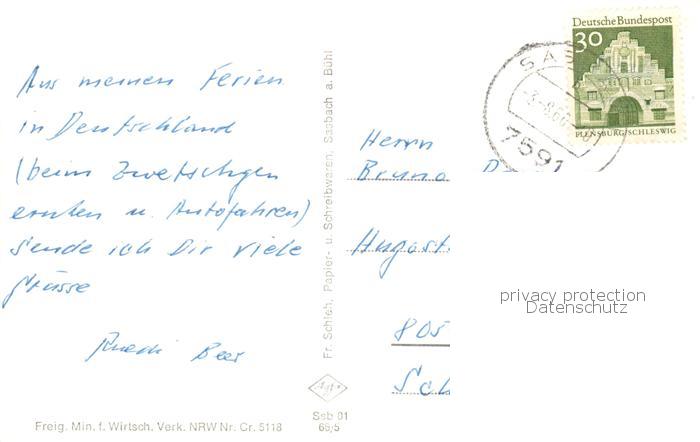 Aus meinen Ferien
in Deutschland
(beim Zwetschgen
ernten u. Autofahren)
sende ich Dir viele
Grüsse
Ruedi Beer
Fr. Schleh, Papier- u. Schreibwaren, Sasbach a. Bühl
Ssb 01
66/5
Freig. Min. f. Wirtsch. Verk. NRW Nr. Cr. 5118
Deutsche Bundespost
30
FLENSBURG/SCHLESWIG
7591
Herrn
Bruno
805
privacy protection
Datenschutz